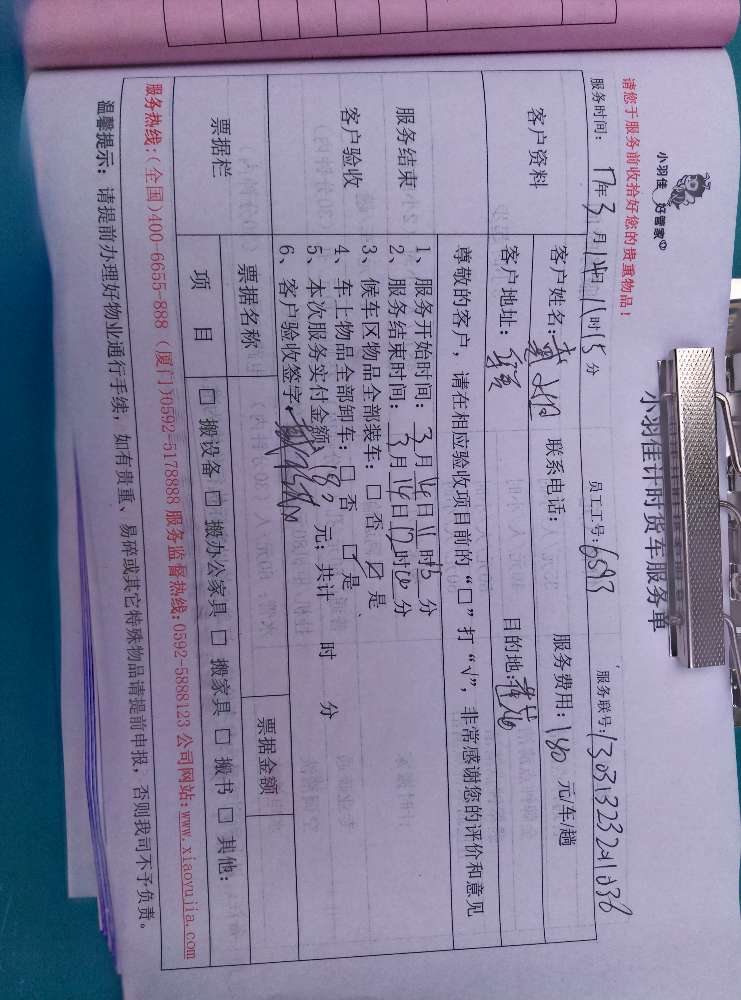 小羽佳 好管家
小羽佳计时货车服务单
请您于服务前收拾好您的贵重物品！
服务时间： 17年3月14日11时15分 员工工号：6593 服务联号：
客户资料
客户姓名： 联系电话： 服务费用：180 元/车/趟
客户地址： 目的地：
尊敬的客户，请在相应验收项目前的“□”打“√”，非常感谢您的评价和意见
服务结束
客户验收
1、服务开始时间：3月14日11时15分
2、服务结束时间：3月14日12时10分
3、候车区物品全部装车：□ 否 ☑ 是、
4、车上物品全部卸车：□ 否 ☑ 是
5、本次服务实付金额：180 元；共计 时 分
6、客户验收签字：
票据栏
票据名称 票据金额
项 目 □ 搬设备 □ 搬办公家具 □ 搬家具 □ 搬书 □ 其他：
服务热线：（全国）400-6655-888（厦门）0592-5178888 服务监督热线：0592-5888123 公司网站：www.xiaoyujia.com
温馨提示：请提前办理好物业通行手续，如有贵重、易碎或其它特殊物品请提前申报，否则我司不予负责。